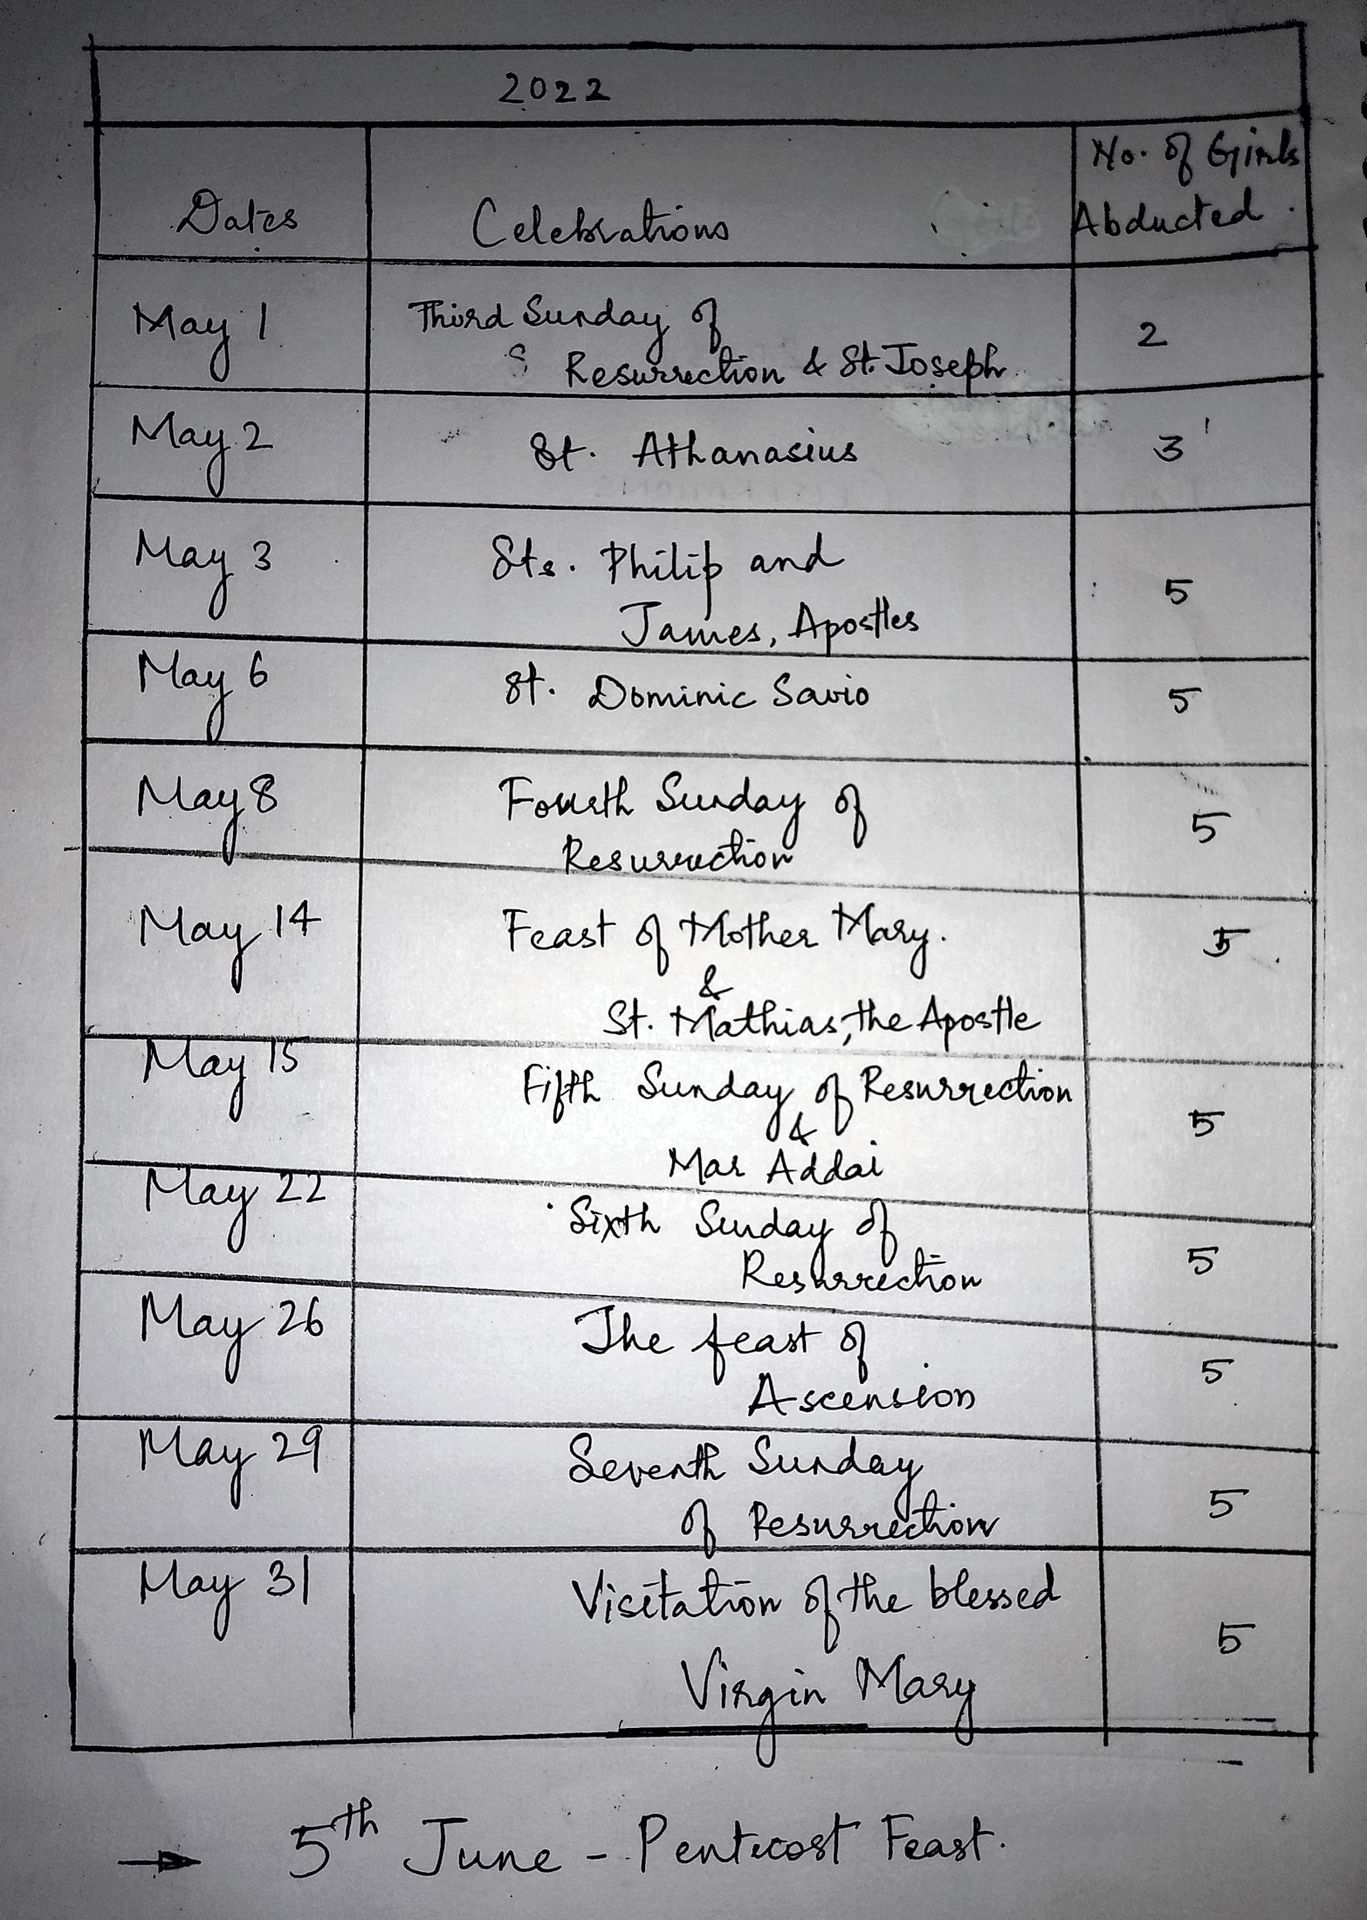 2022
Dates Celebrations No. of Girls
Abducted
May 1 Third Sunday of
Resurrection & St. Joseph 2
May 2 St. Athanasius 3
May 3 Sts. Philip and
James, Apostles 5
May 6 St. Dominic Savio 5
May 8 Fourth Sunday of
Resurrection 5
May 14 Feast of Mother Mary. 5
&
St. Mathias, the Apostle
May 15 Fifth Sunday of Resurrection
& 5
Mar Addai
May 22 Sixth Sunday of
Resurrection 5
May 26 The feast of
Ascension 5
May 29 Seventh Sunday
of Resurrection 5
May 31 Visitation of the blessed
Virgin Mary 5
→ 5th June - Pentecost Feast.